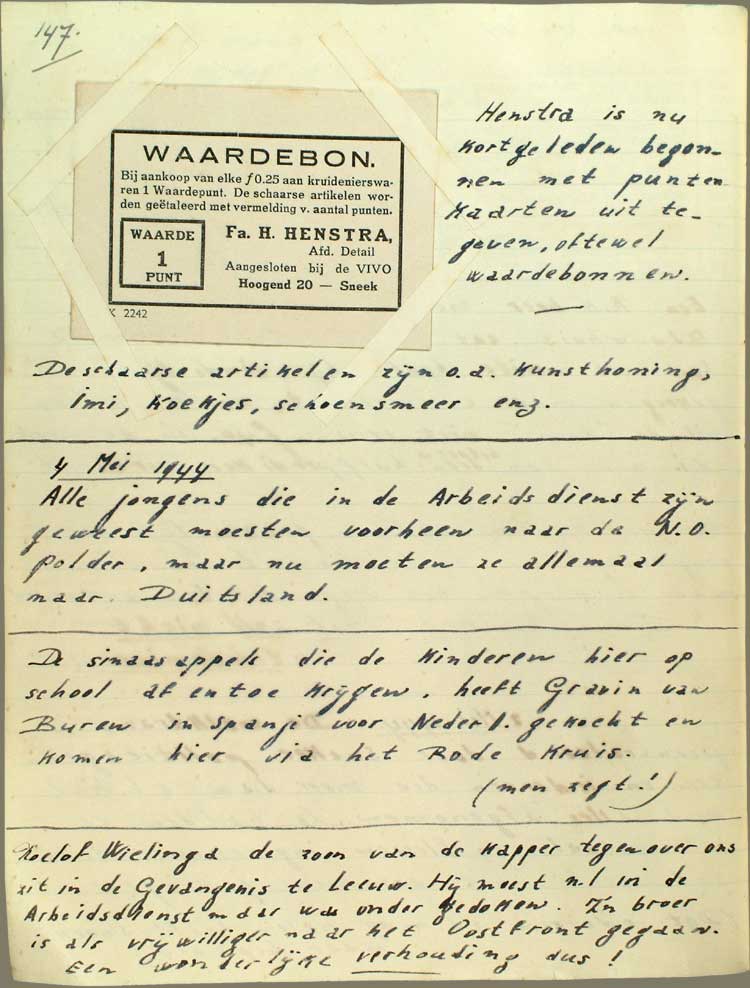 147.
WAARDEBON.
Bij aankoop van elke ƒ0.25 aan kruidenierswa-
ren 1 Waardepunt. De schaarse artikelen wor-
den geëtaleerd met vermelding v. aantal punten.
WAARDE
1
PUNT
Fa. H. HENSTRA,
Afd. Detail
Aangesloten bij de VIVO
Hoogend 20 — Sneek
K 2242
Henstra is nu
kortgeleden begon-
nen met punten
kaarten uit te-
geven, oftewel
waardebonnen.
De schaarse artikelen zijn o.a. kunsthoning,
imi, koekjes, schoensmeer enz.
4 Mei 1944
Alle jongens die in de Arbeidsdienst zijn
geweest moesten voorheen naar de N.O.
polder, maar nu moeten ze allemaal
naar Duitsland.
De sinaasappels die de kinderen hier op
school af en toe krijgen, heeft Gravin van
Buren in Spanje voor Nederl. gekocht en
komen hier via het Rode Kruis.
(men zegt!)
Roelof Wielinga de zoon van de kapper tegenover ons
zit in de Gevangenis te Leeuw. Hij moest n.l in de
Arbeidsdienst maar was onder gedoken. Z'n broer
is als vrijwilliger naar het Oostfront gegaan.
Een wonderlijke verhouding dus!